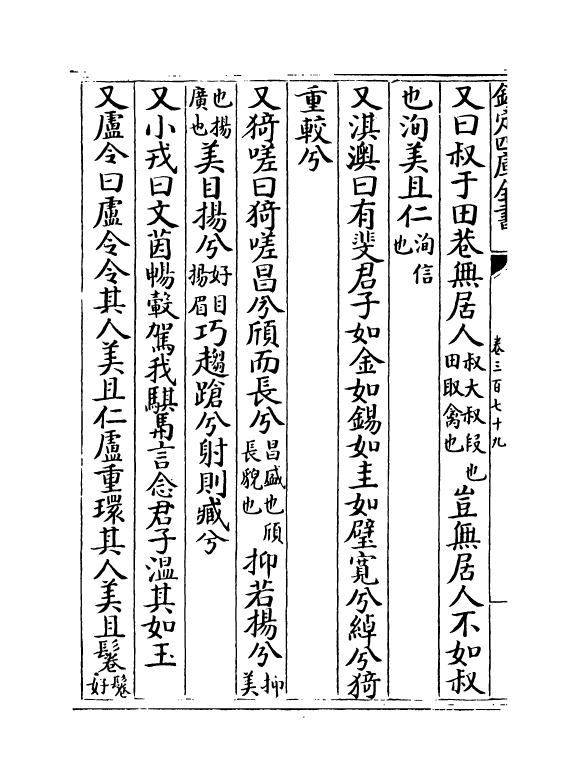 欽定四庫全書
卷三百七十九
又曰叔于田巷無居人叔大叔段也田取禽也豈無居人不如叔
也洵美且仁洵信也
又淇澳曰有斐君子如金如錫如圭如璧寛兮綽兮猗
重較兮
又猗嗟曰猗嗟昌兮頎而長兮昌盛也頎長貌也抑若揚兮抑美
也揚廣也美目揚兮好目揚眉巧趨蹌兮射則臧兮
又小戎曰文茵暢轂駕我騏馵言念君子溫其如玉
又盧令曰盧令令其人美且仁盧重環其人美且鬈鬈好